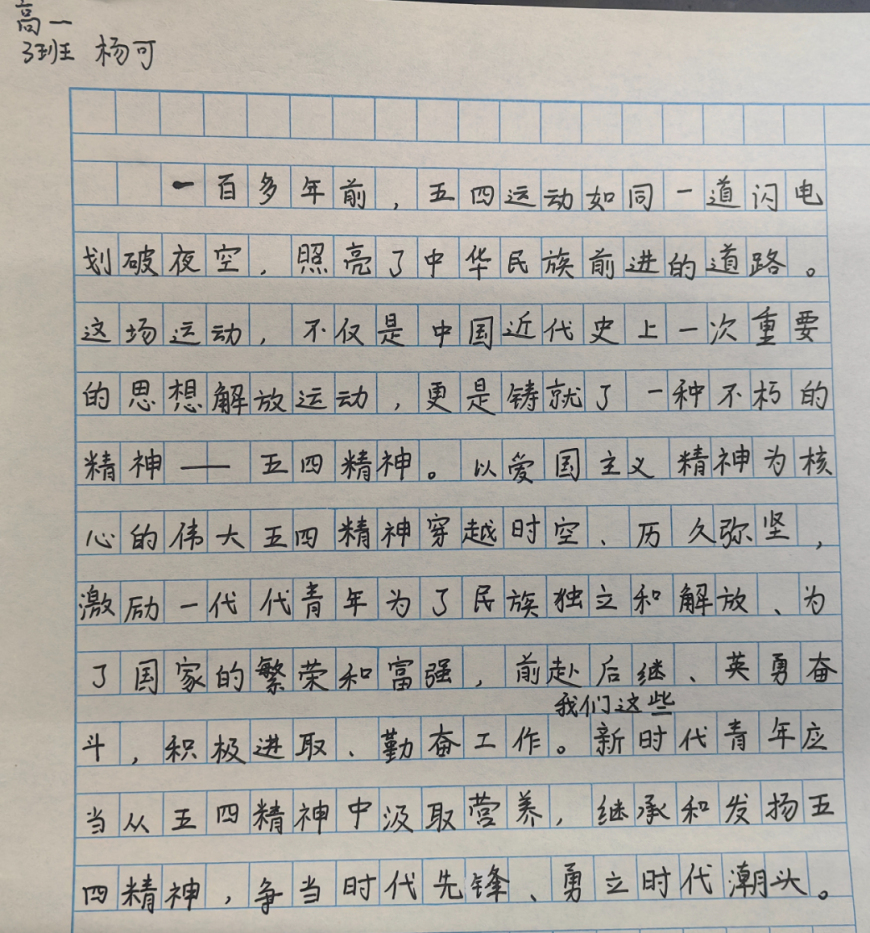 高一
3班 杨可
一百多年前，五四运动如同一道闪电
划破夜空，照亮了中华民族前进的道路。
这场运动，不仅是中国近代史上一次重要
的思想解放运动，更是铸就了一种不朽的
精神——五四精神。以爱国主义精神为核
心的伟大五四精神穿越时空、历久弥坚，
激励一代代青年为了民族独立和解放、为
了国家的繁荣和富强，前赴后继、英勇奋
我们这些
斗，积极进取、勤奋工作。新时代青年应
当从五四精神中汲取营养，继承和发扬五
四精神，争当时代先锋、勇立时代潮头。